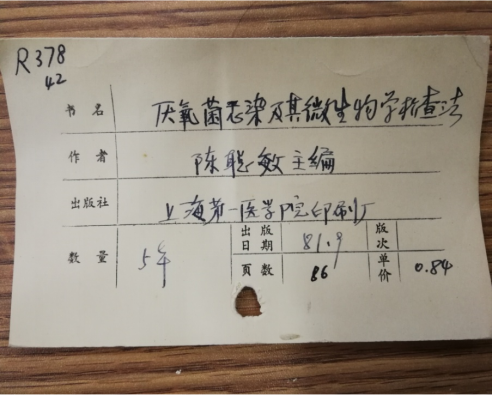 R378
42
书名 厌氧菌感染及其微生物学检查法
作者 陈聪敏主编
出版社 上海第一医学院印刷厂
数量 5本 出版日期 81.9 版次
页数 86 单价 0.84